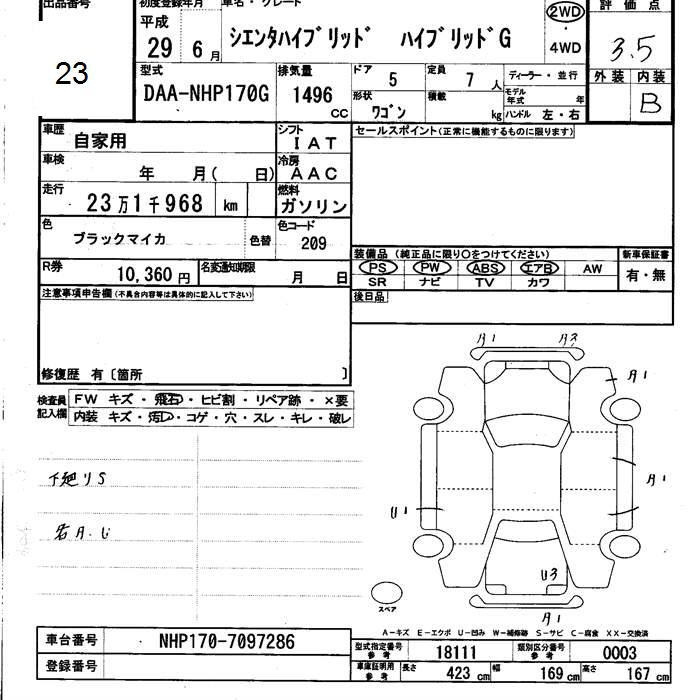 出品番号
23
初度登録年月
平成
29年 6月
車名・グレード
シエンタハイブリッド ハイブリッドG
2WD
・
4WD
評価点
3.5
外装 内装
B
型式
DAA-NHP170G
排気量
1496 CC
ドア 5
定員 7 人
形状 ワゴン
積載 kg
ディーラー・並行
モデル年式 年
ハンドル 左・右
車歴 自家用
シフト IAT
車検 年 月( 日)
冷房 AAC
走行 23万1千968 km
燃料 ガソリン
色 ブラックマイカ 色替
色コード 209
R券 10,360円
名変通知期限 月 日
セールスポイント(正常に機能するものに限ります)
装備品 (純正品に限り○をつけてください)
新車保証書
PS PW ABS エアB AW
有・無
SR ナビ TV カワ
後日品
注意事項申告欄(不具合内容等は具体的に記入して下さい)
修復歴 有〔箇所 〕
検査員記入欄
FW キズ・飛石・ヒビ割・リペア跡・×要
内装 キズ・汚レ・コゲ・穴・スレ・キレ・破レ
下廻りS
A1 A3
A1
A1
U1
U3
A1
スペア
A-キズ E-エクボ U-凹み W-補修跡 S-サビ C-腐食 XX-交換済
車台番号 NHP170-7097286
登録番号
型式指定番号参考 18111
類別区分番号参考 0003
車庫証明用参考 長さ 423 cm 幅 169 cm 高さ 167 cm